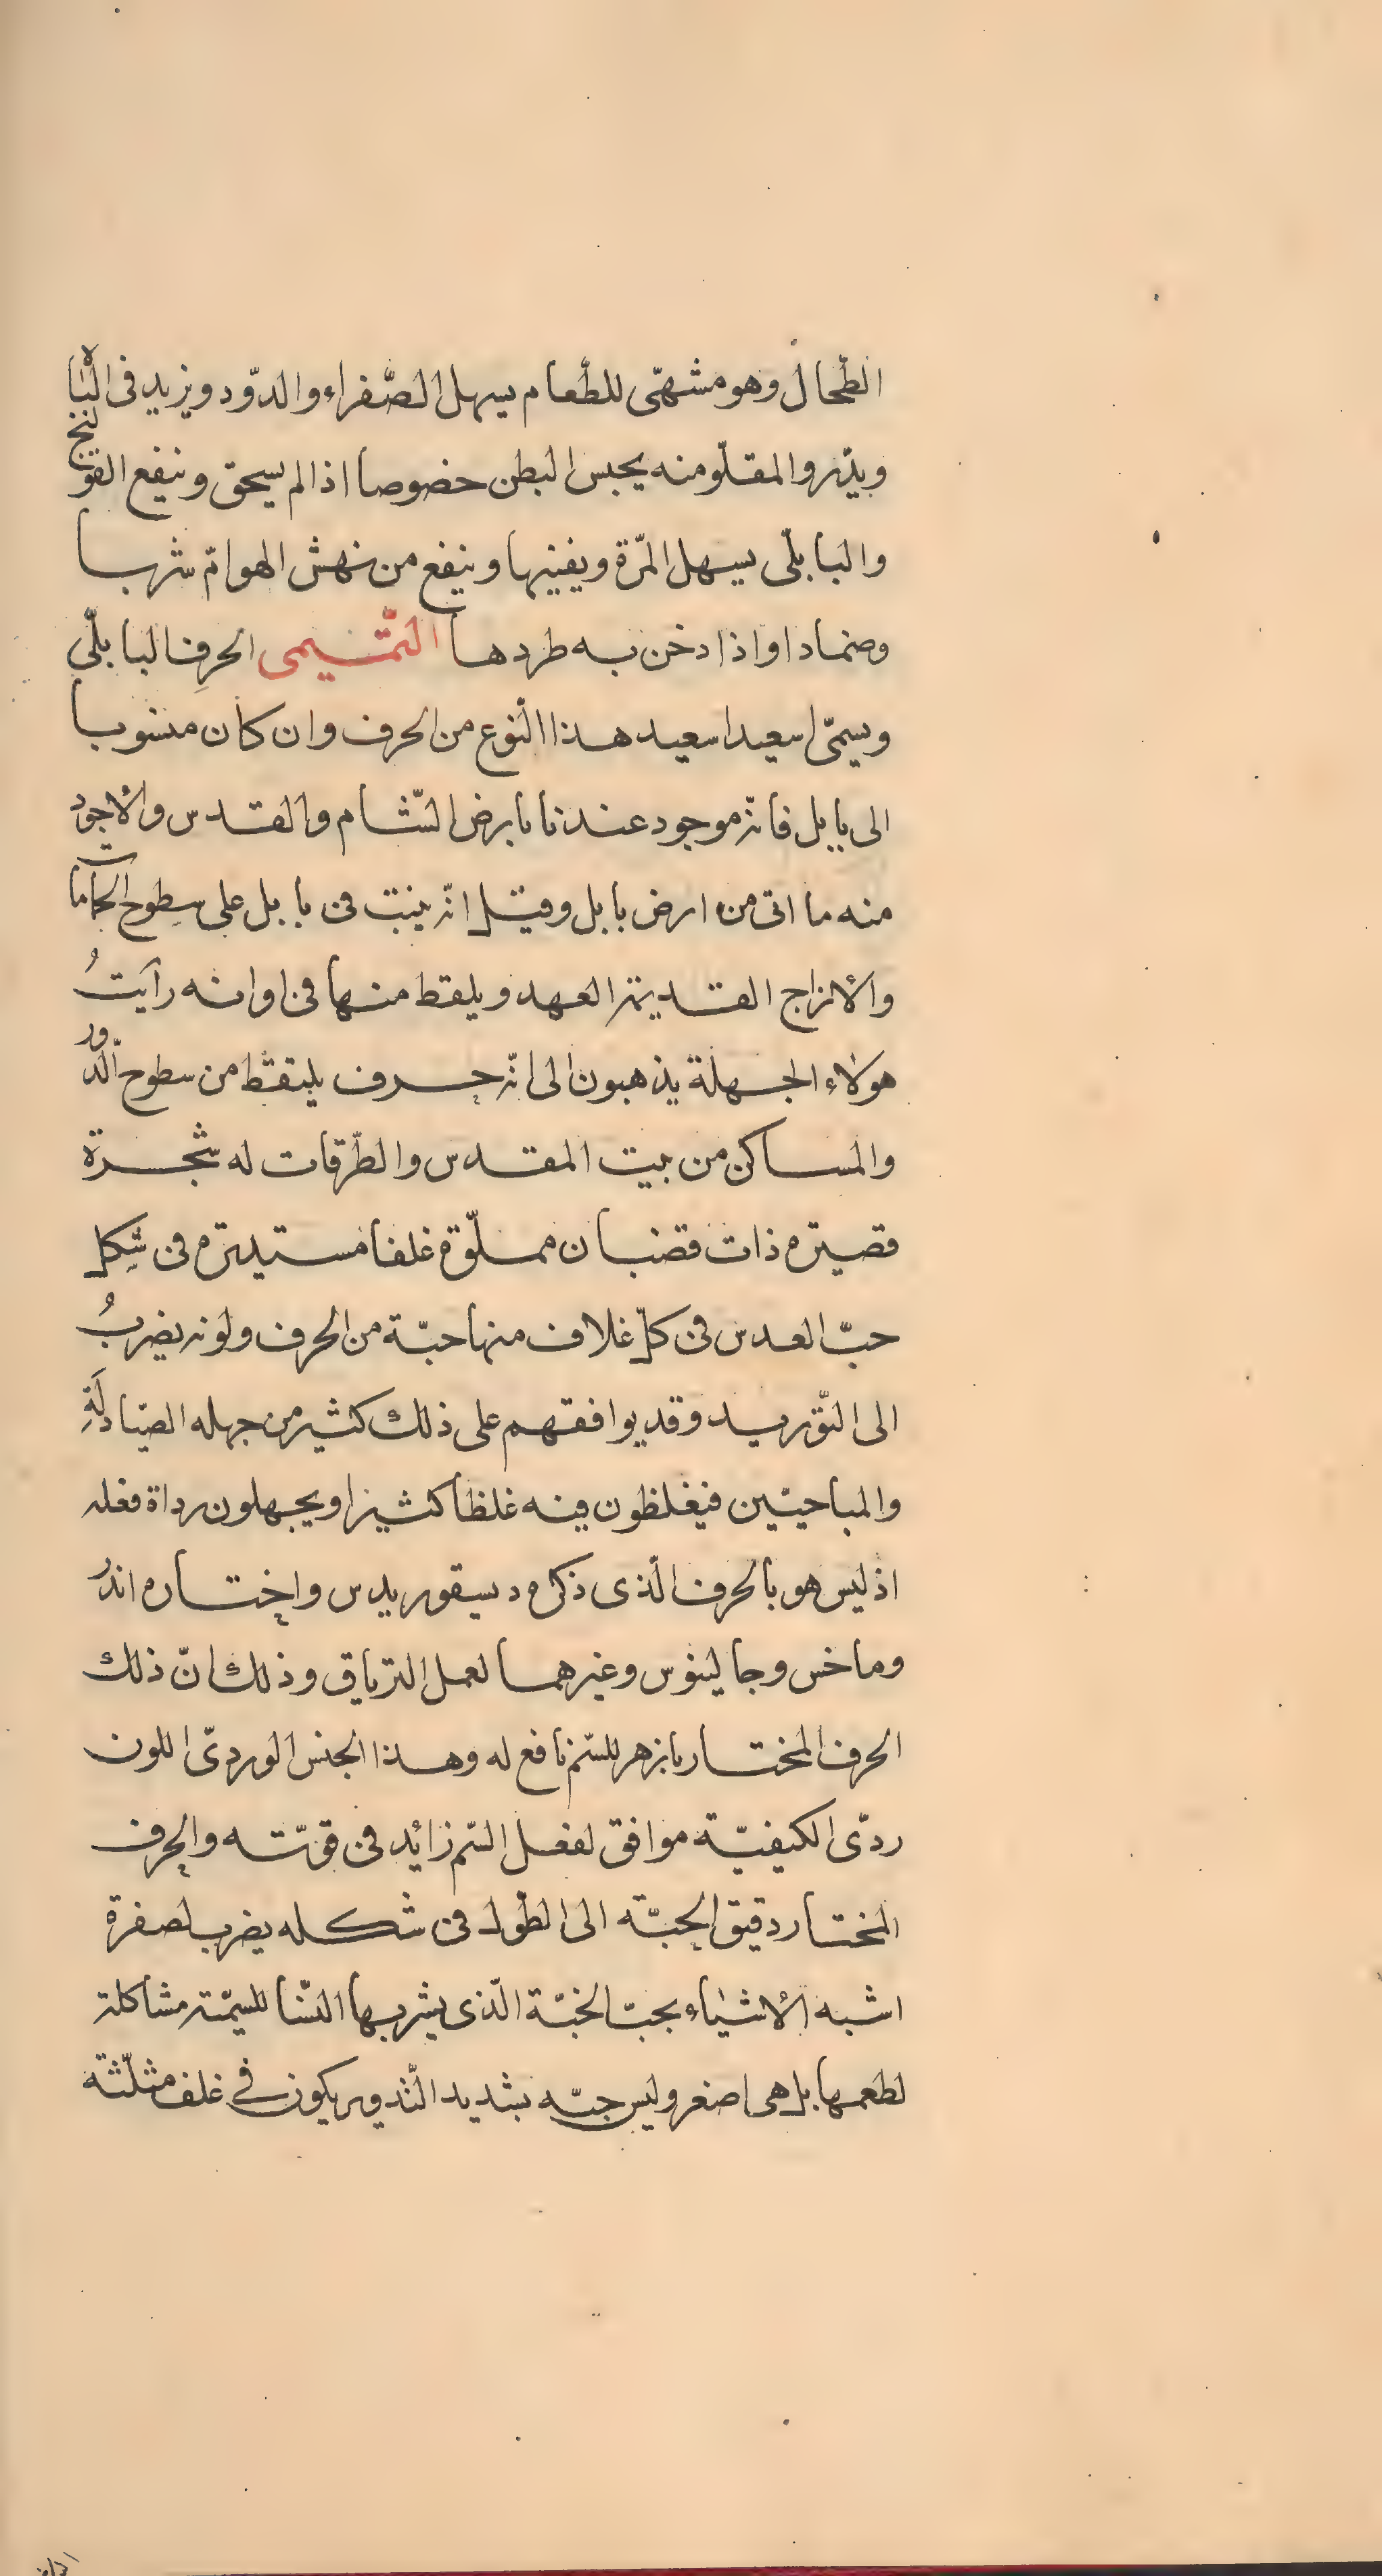 الطّحال وهو مشهّى للطّعام يسهل الصّفراء والدّود ويزيد فى الباه
ويدّر والمقلّو منه يحبس البطن خصوصا اذا لم يسحق وينفع القولنج
والبابلّى يسهل المرّة ويفنيها وينفع من نهش الهوامّ شربا
وضمادا واذا دخن به طردها التّميمى الحرف البابلّى
ويسمّى اسعيد اسعيد هذا النّوع من الحرف وان كان منسوبا
الى بابل فانّه موجود عندنا بارض الشّام والقدس والاجود
منه ما اتى من ارض بابل وقيل انّه ينبت فى بابل على سطوح الحمامات
والازاج القديمة العهد ويلقط منها فى اوانه رآيتُ
هولاء الجهلة يذهبون الى انّه حرف يلتقط من سطوح الدّور
والمساكن من بيت المقدس والطّرقات له شجرة
قصيره ذات قضبان مملّوة غلفا مستديره فى شكل
حبّ العدس فى كلّ غلاف منها حبّة من الحرف ولونه يضربُ
الى التّوريد وقد يوافقهم على ذلك كثير من جهله الصّيادلَةِ
والمباحيّين فيغلظون فيه غلظا كثيرا ويجهلون رداة فعله
اذ ليس هو بالحرف الّذى ذكره ديسقوريدس واختاره اندر
وماخس وجالينوس وغيرهما لعمل الترياق وذلك انّ ذلك
الحرف المختار بازهر للسّم نافع له وهذا الجنس الوردىّ اللون
ردّى الكيفيّة موافق لفعل السّم زائد فى قوّته والحرف
المختار دقيق الحبّه الى الطّول فى شكله يضرب لصفرة
اشبه الاشياء بحبّ الخبّة الّذى يشربها النسّا للسمّنه مشاكلة
لطعمها بل هى اصغر وليس حبّه بشديد التّدوير يكون فى غلف مثلّثه